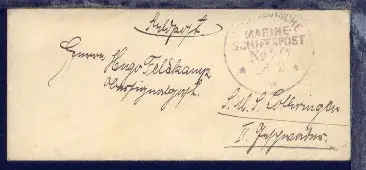 Feldpost.
DEUTSCHE
MARINE-
SCHIFFSPOST
No
Herrn Hugo Feldkamp
Obersignalgast.
S.M.S. Lothringen
II. Geschwader.